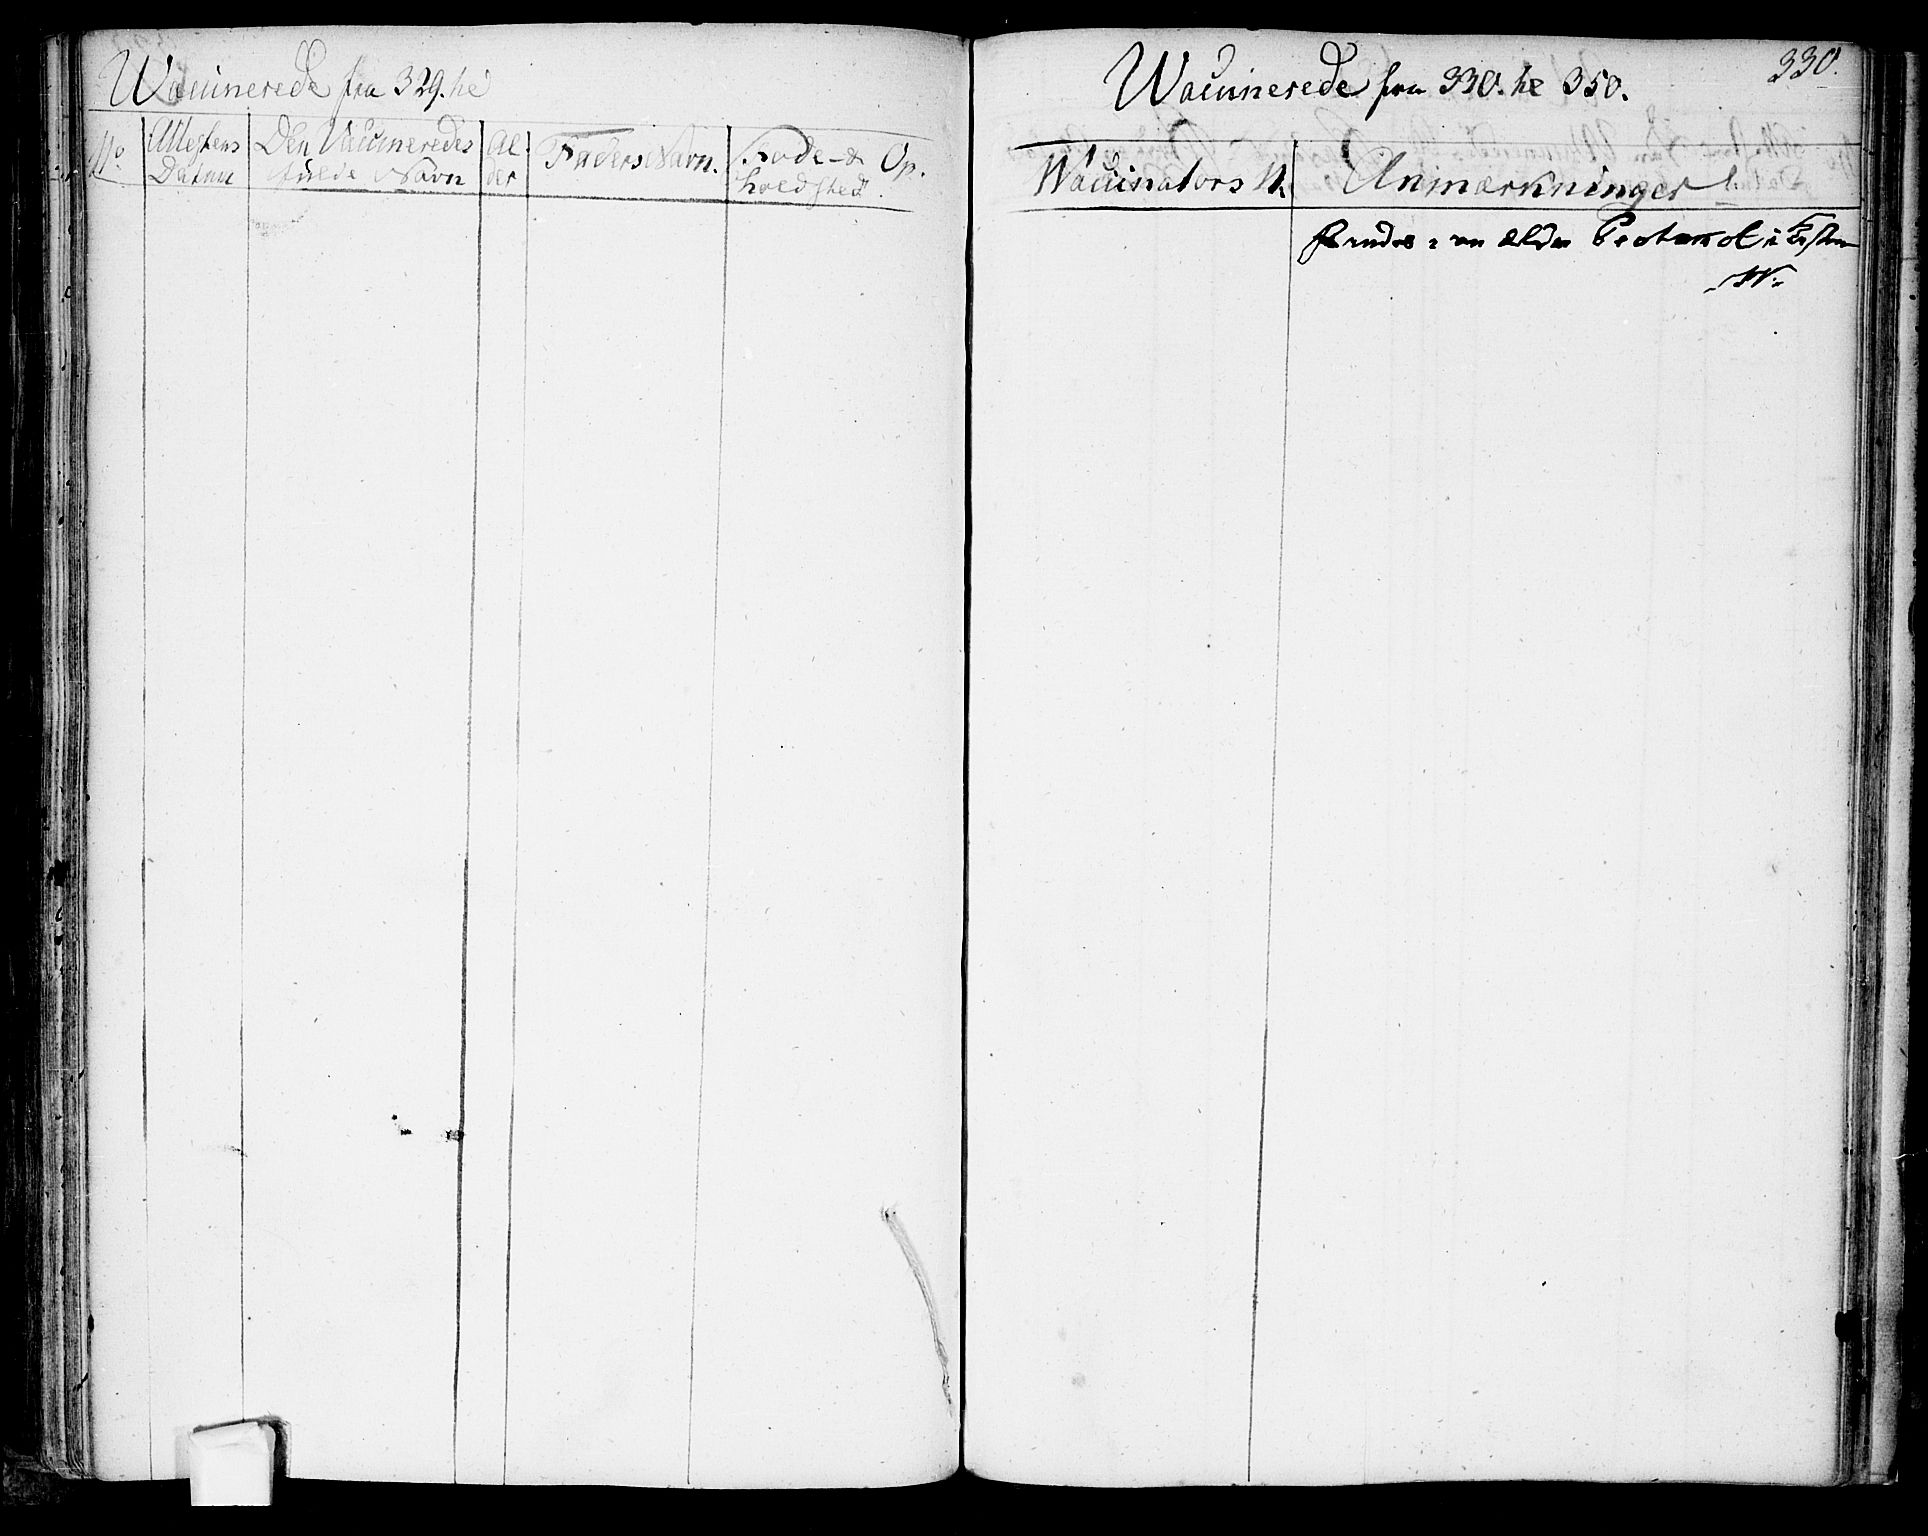 Vaccinerede fra 329. til
No
Attestens
Datum
Den Vaccineredes
fulde Navn
Al-
der
Faders Navn.
Føde- & Op-
holdssted.
330.
Vaccinerede fra 330. til 350.
Vaccinators N.
Anmærkninger
findes i en ældre Protocol i